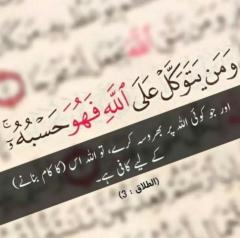 وَمَن يَتَوَكَّلْ عَلَى ٱللَّهِ فَهُوَ حَسْبُهُۥٓ ۚ
اور جو کوئی اللہ پر بھروسہ کرے، تو اللہ اس (کا کام بنانے)
کے لیے کافی ہے۔
(الطلاق : 3)